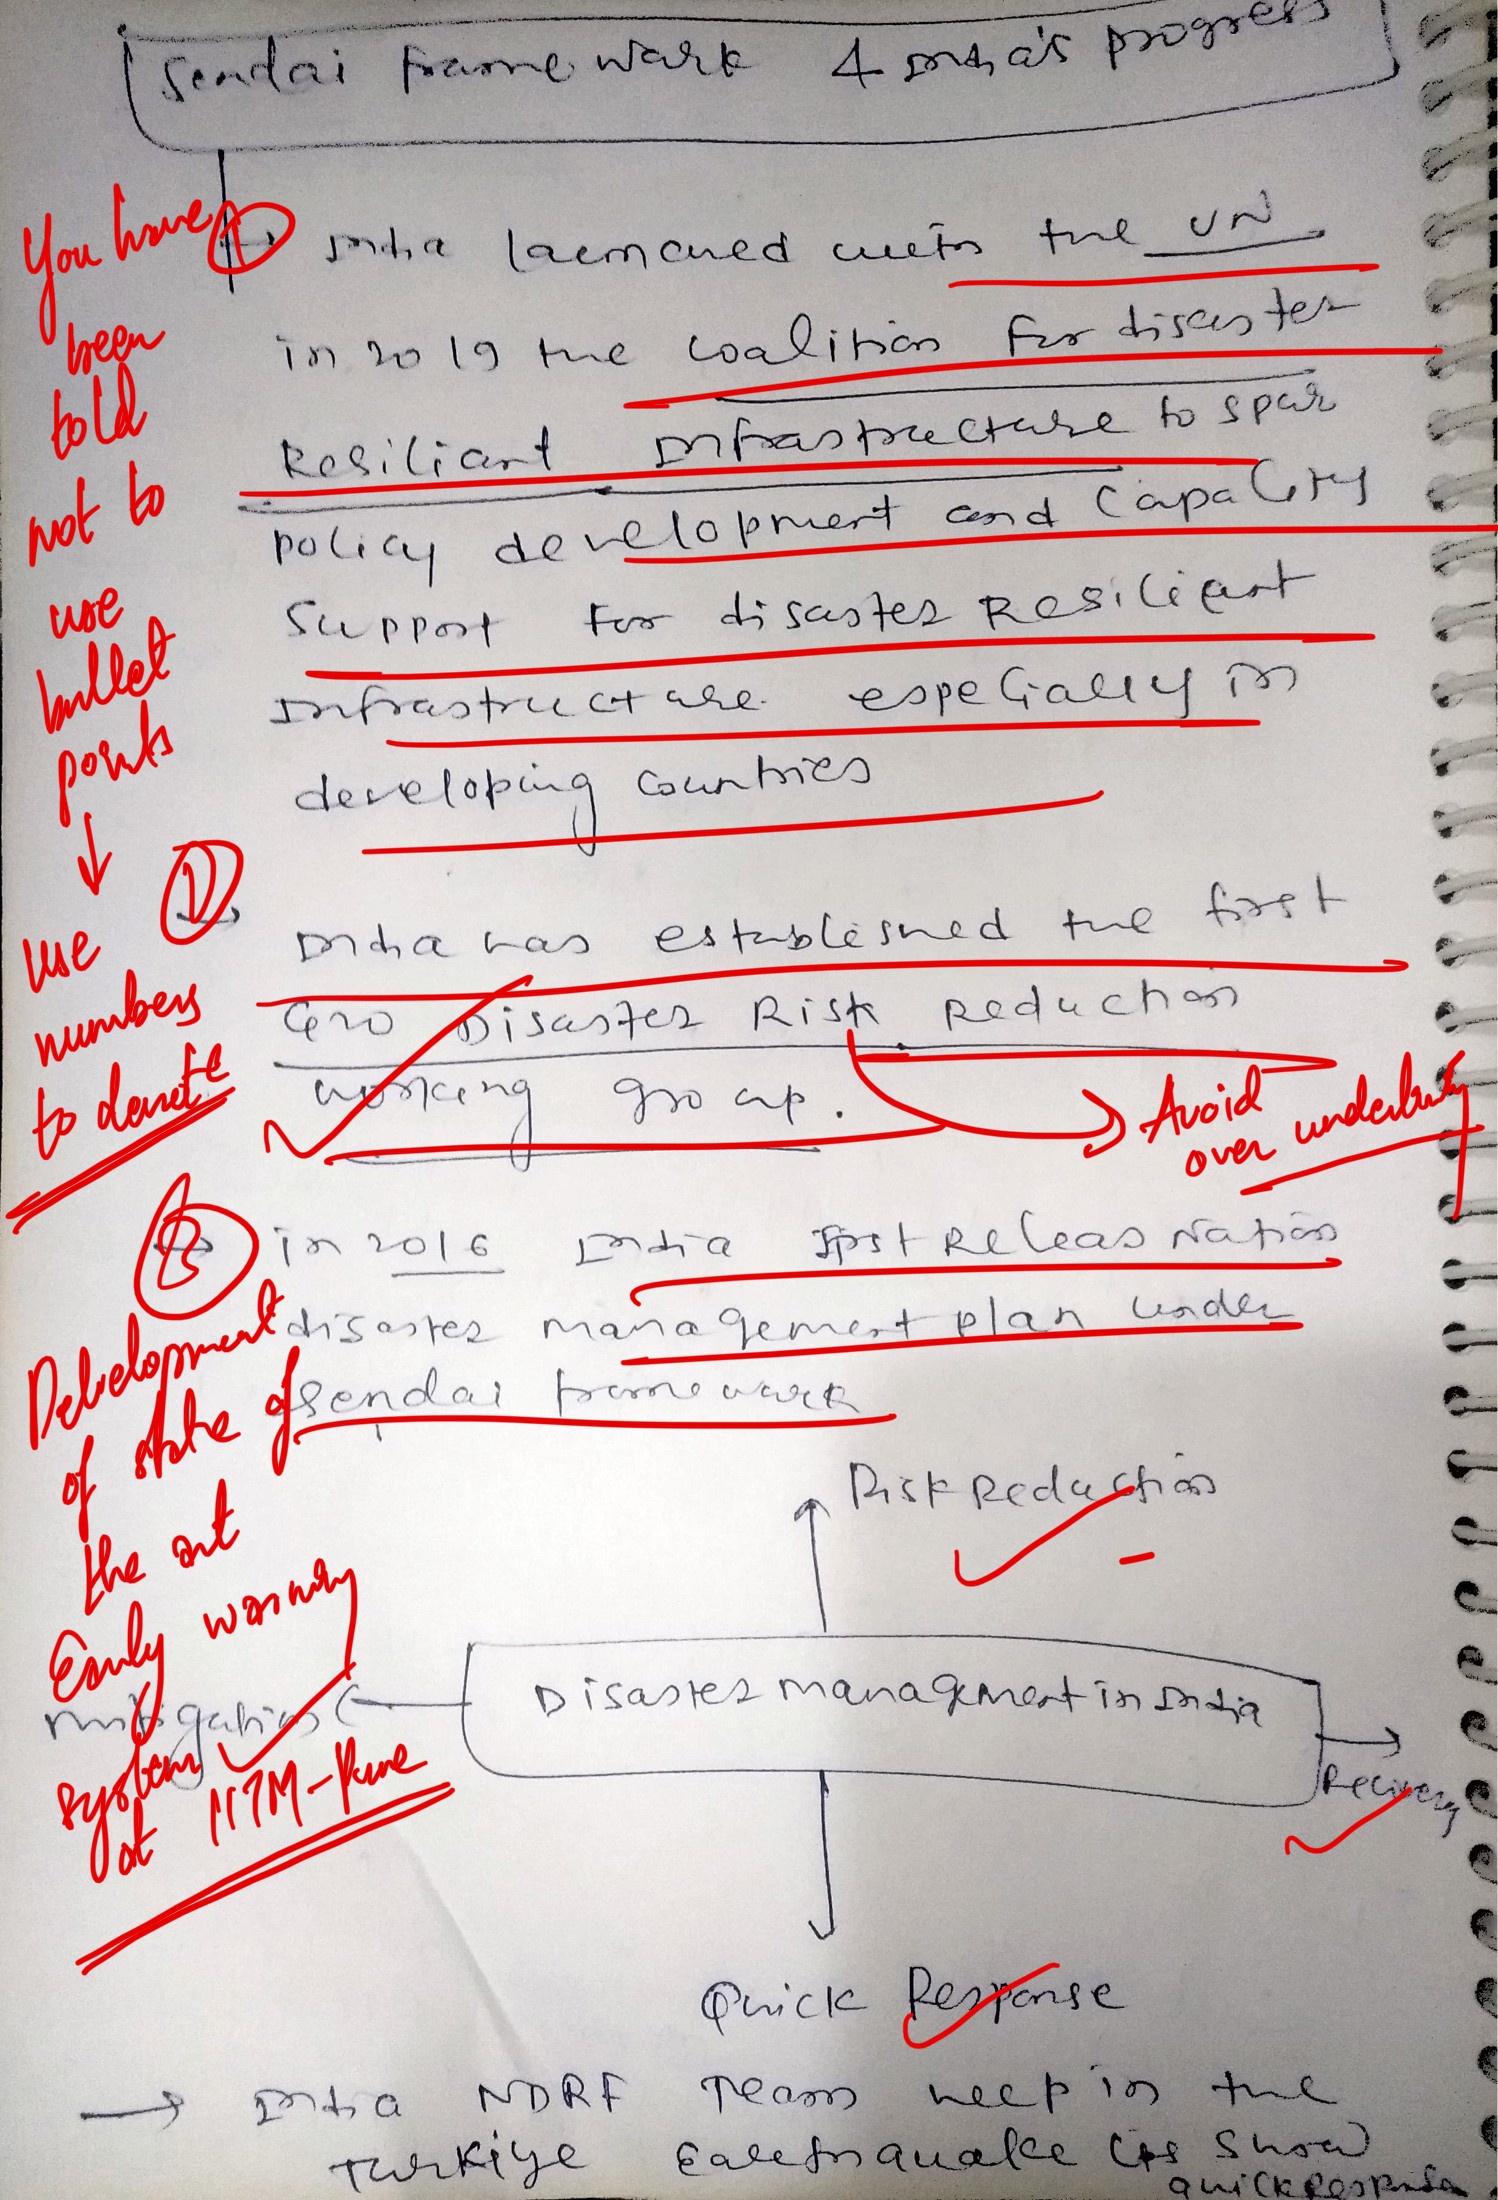 Sendai framework & India's progress
You have
been
told
not to
use
bullet
points
↓
Use
numbers
to denote
①
→ India launched with the UN
in 2019 the Coalition for disaster
Resiliant Infrastructure to spur
policy development and Capacity
Support for disaster Resilient
Infrastructure especially in
developing countries
→ India has established the first
G20 Disaster Risk Reduction
working group.
Avoid
over underlining
→ in 2016 India first Releas Nation
disaster management plan under
Sendai framework
Development
of state of
the art
Early warning
system
at IITM-Pune
Risk Reduction
mitigation
Disaster management in India
Recovery
Quick Response
→ India NDRF Team help in the
Turkiye Earthquake its show
quick response